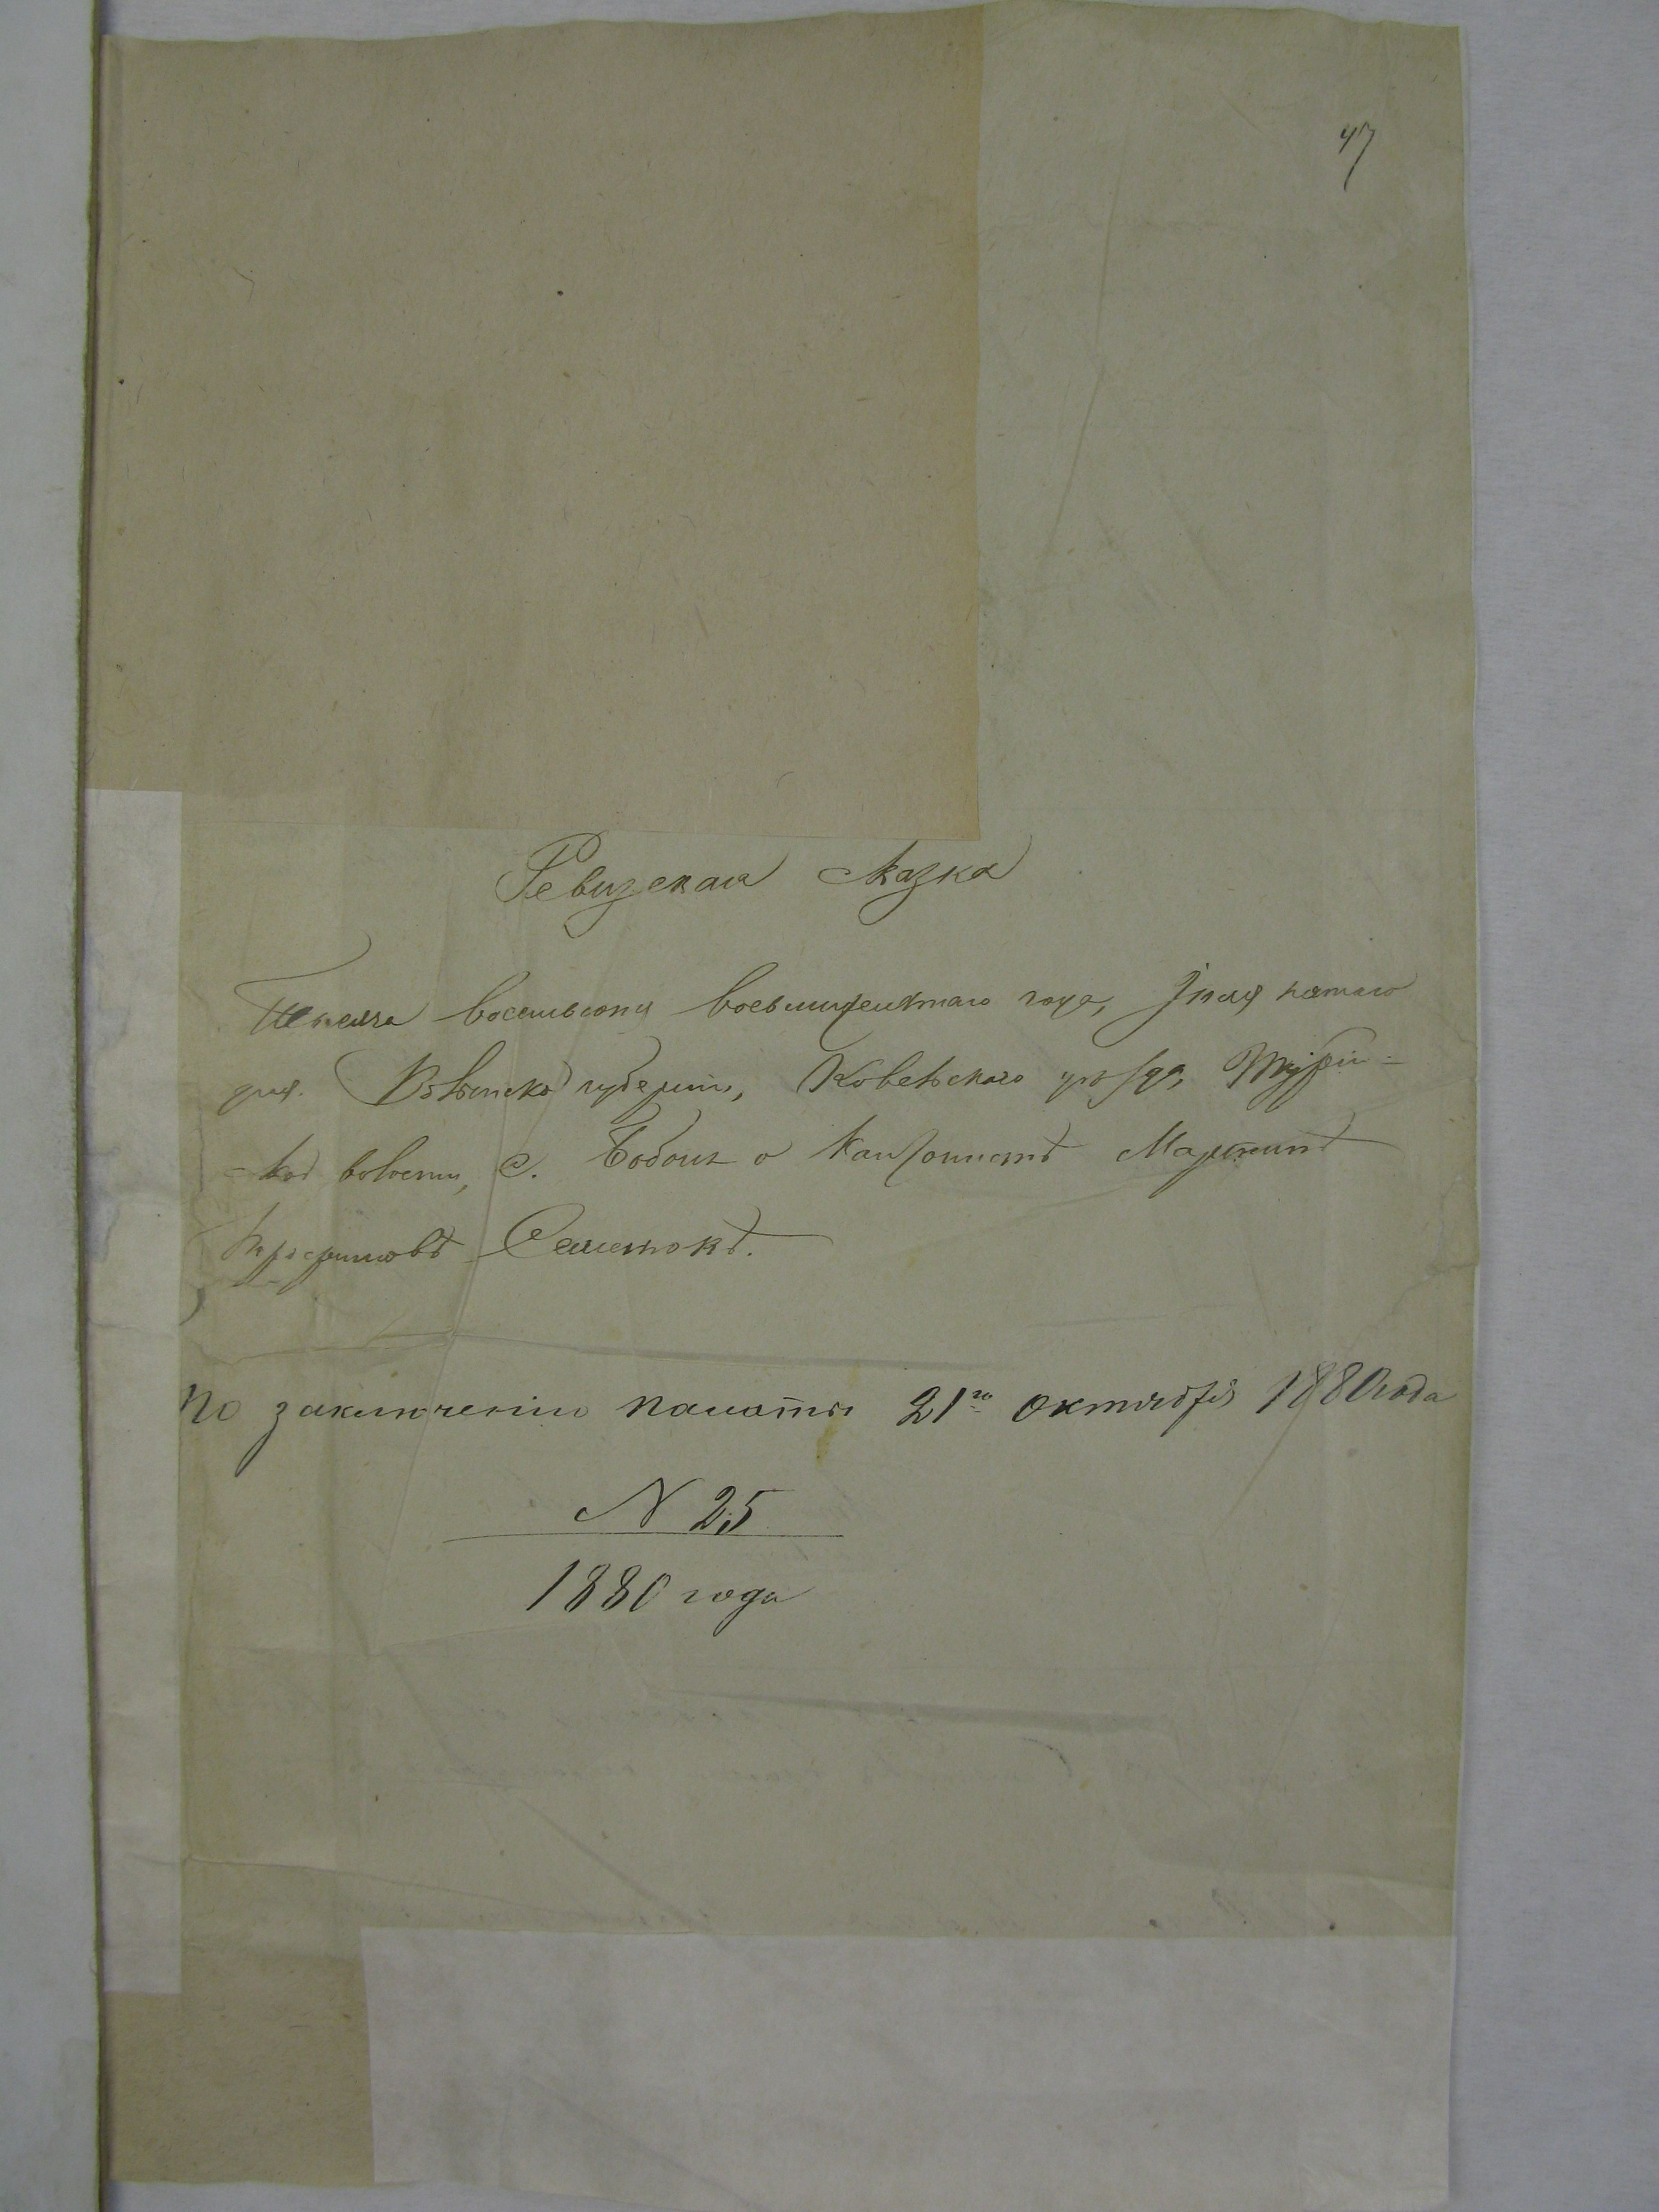 47
Ревизская сказка
Тысяча восемьсотъ восьмидесятаго года, Iюля пятаго
дня. Волынской губернiи, Ковельскаго уѣзда, Турiй-
ской волости, с. Бобли о кантонистѣ Мартинѣ
по заключенiю палаты 21го октября 1880 года
N 25
1880 года